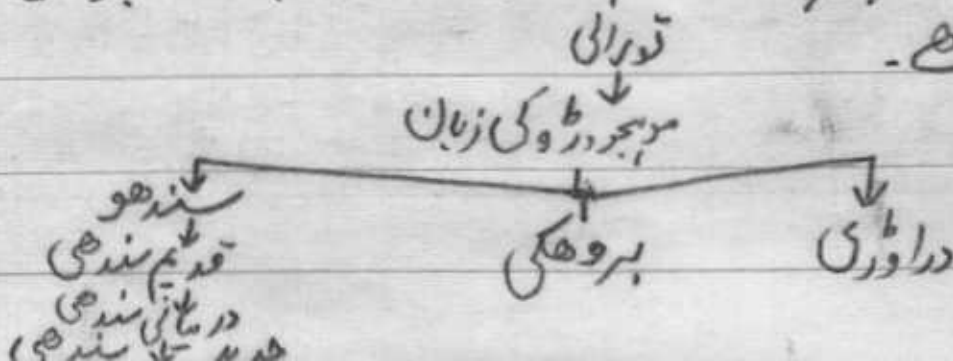 ھے۔
تورانی
موہنجودڑو کی زبان
سندھو
بروھکی
دراوڑی
قدیم سندھی
درمیانی سندھی
جدید سندھی